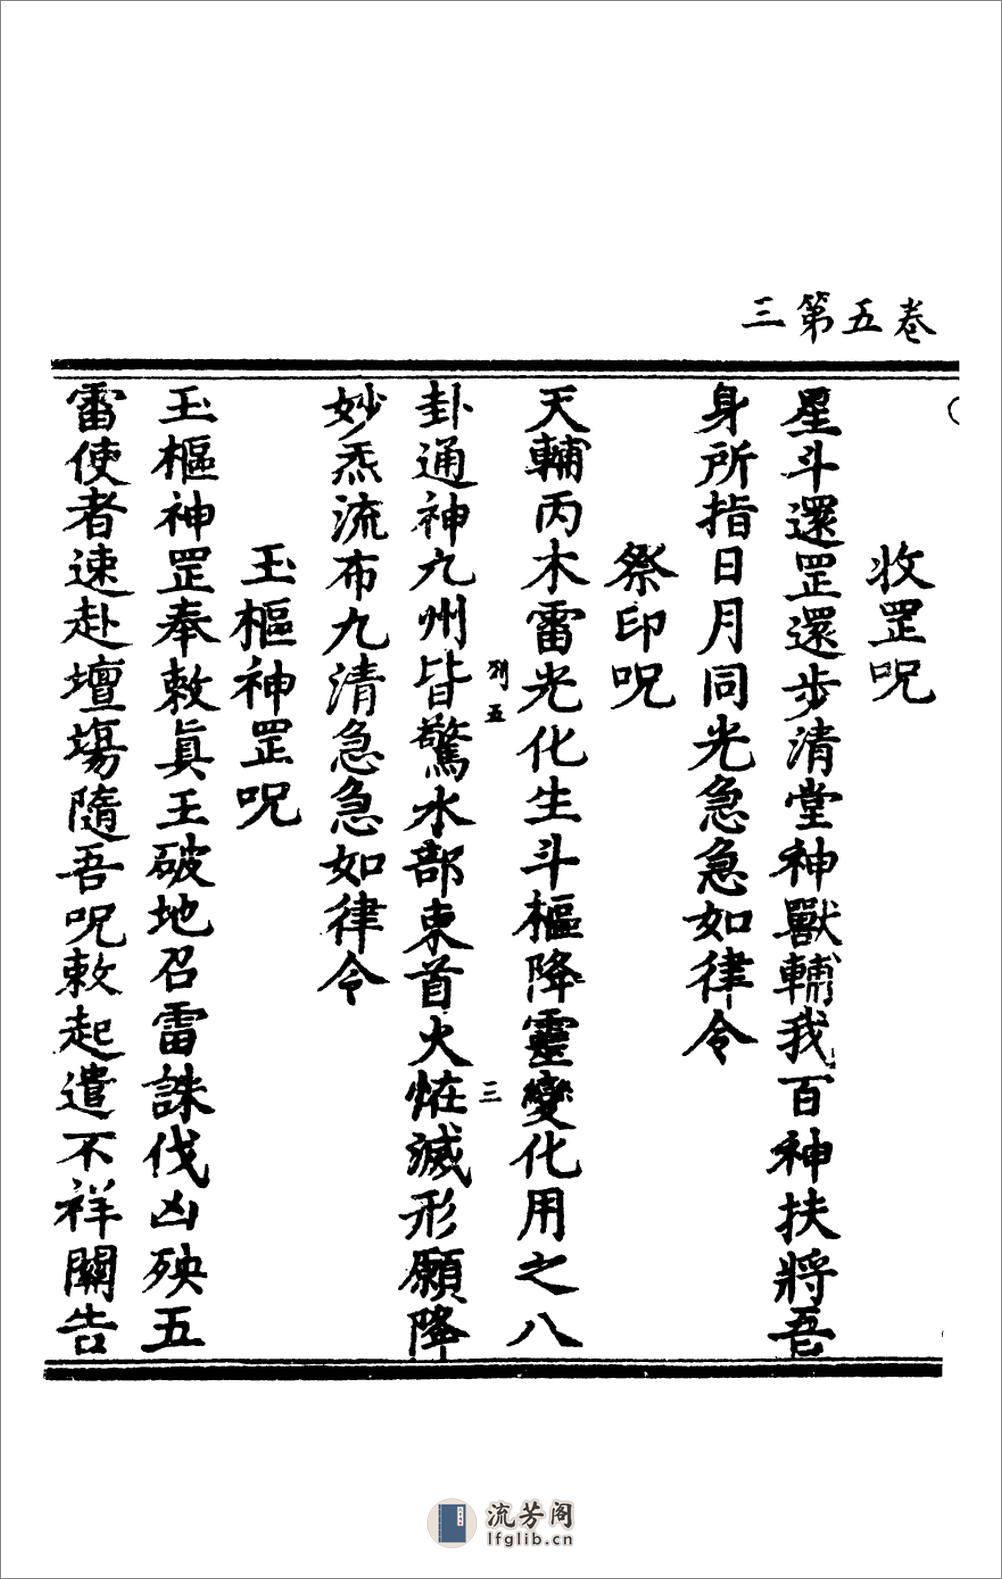 三第五卷
收罡呪
星斗還罡還步清堂神獸輔我百神扶將吾
身所指日月同光急急如律令
祭印呪
天輔丙木雷光化生斗樞降靈變化用之八
卦通神九州皆驚水部東首火𤆬滅形願降
列五
三
妙炁流布九清急急如律令
玉樞神罡呪
玉樞神罡奉敕真王破地召雷誅伐凶殃五
雷使者速赴壇塲隨吾呪敕起遣不祥關告
流芳阁
lfglib.cn